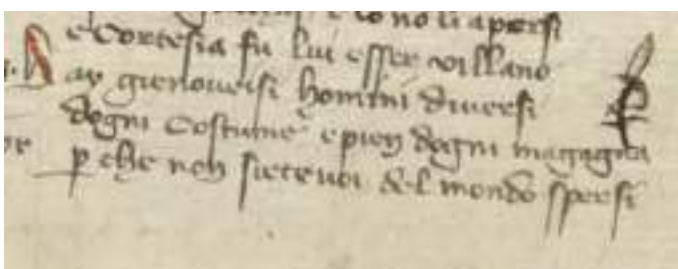 e io no li apersi
e Cortesia fu lui esser villano
ay gienouesi homini diuersi
dogni costume e pien dogni magagna
p che non siete uoi del mondo spersi